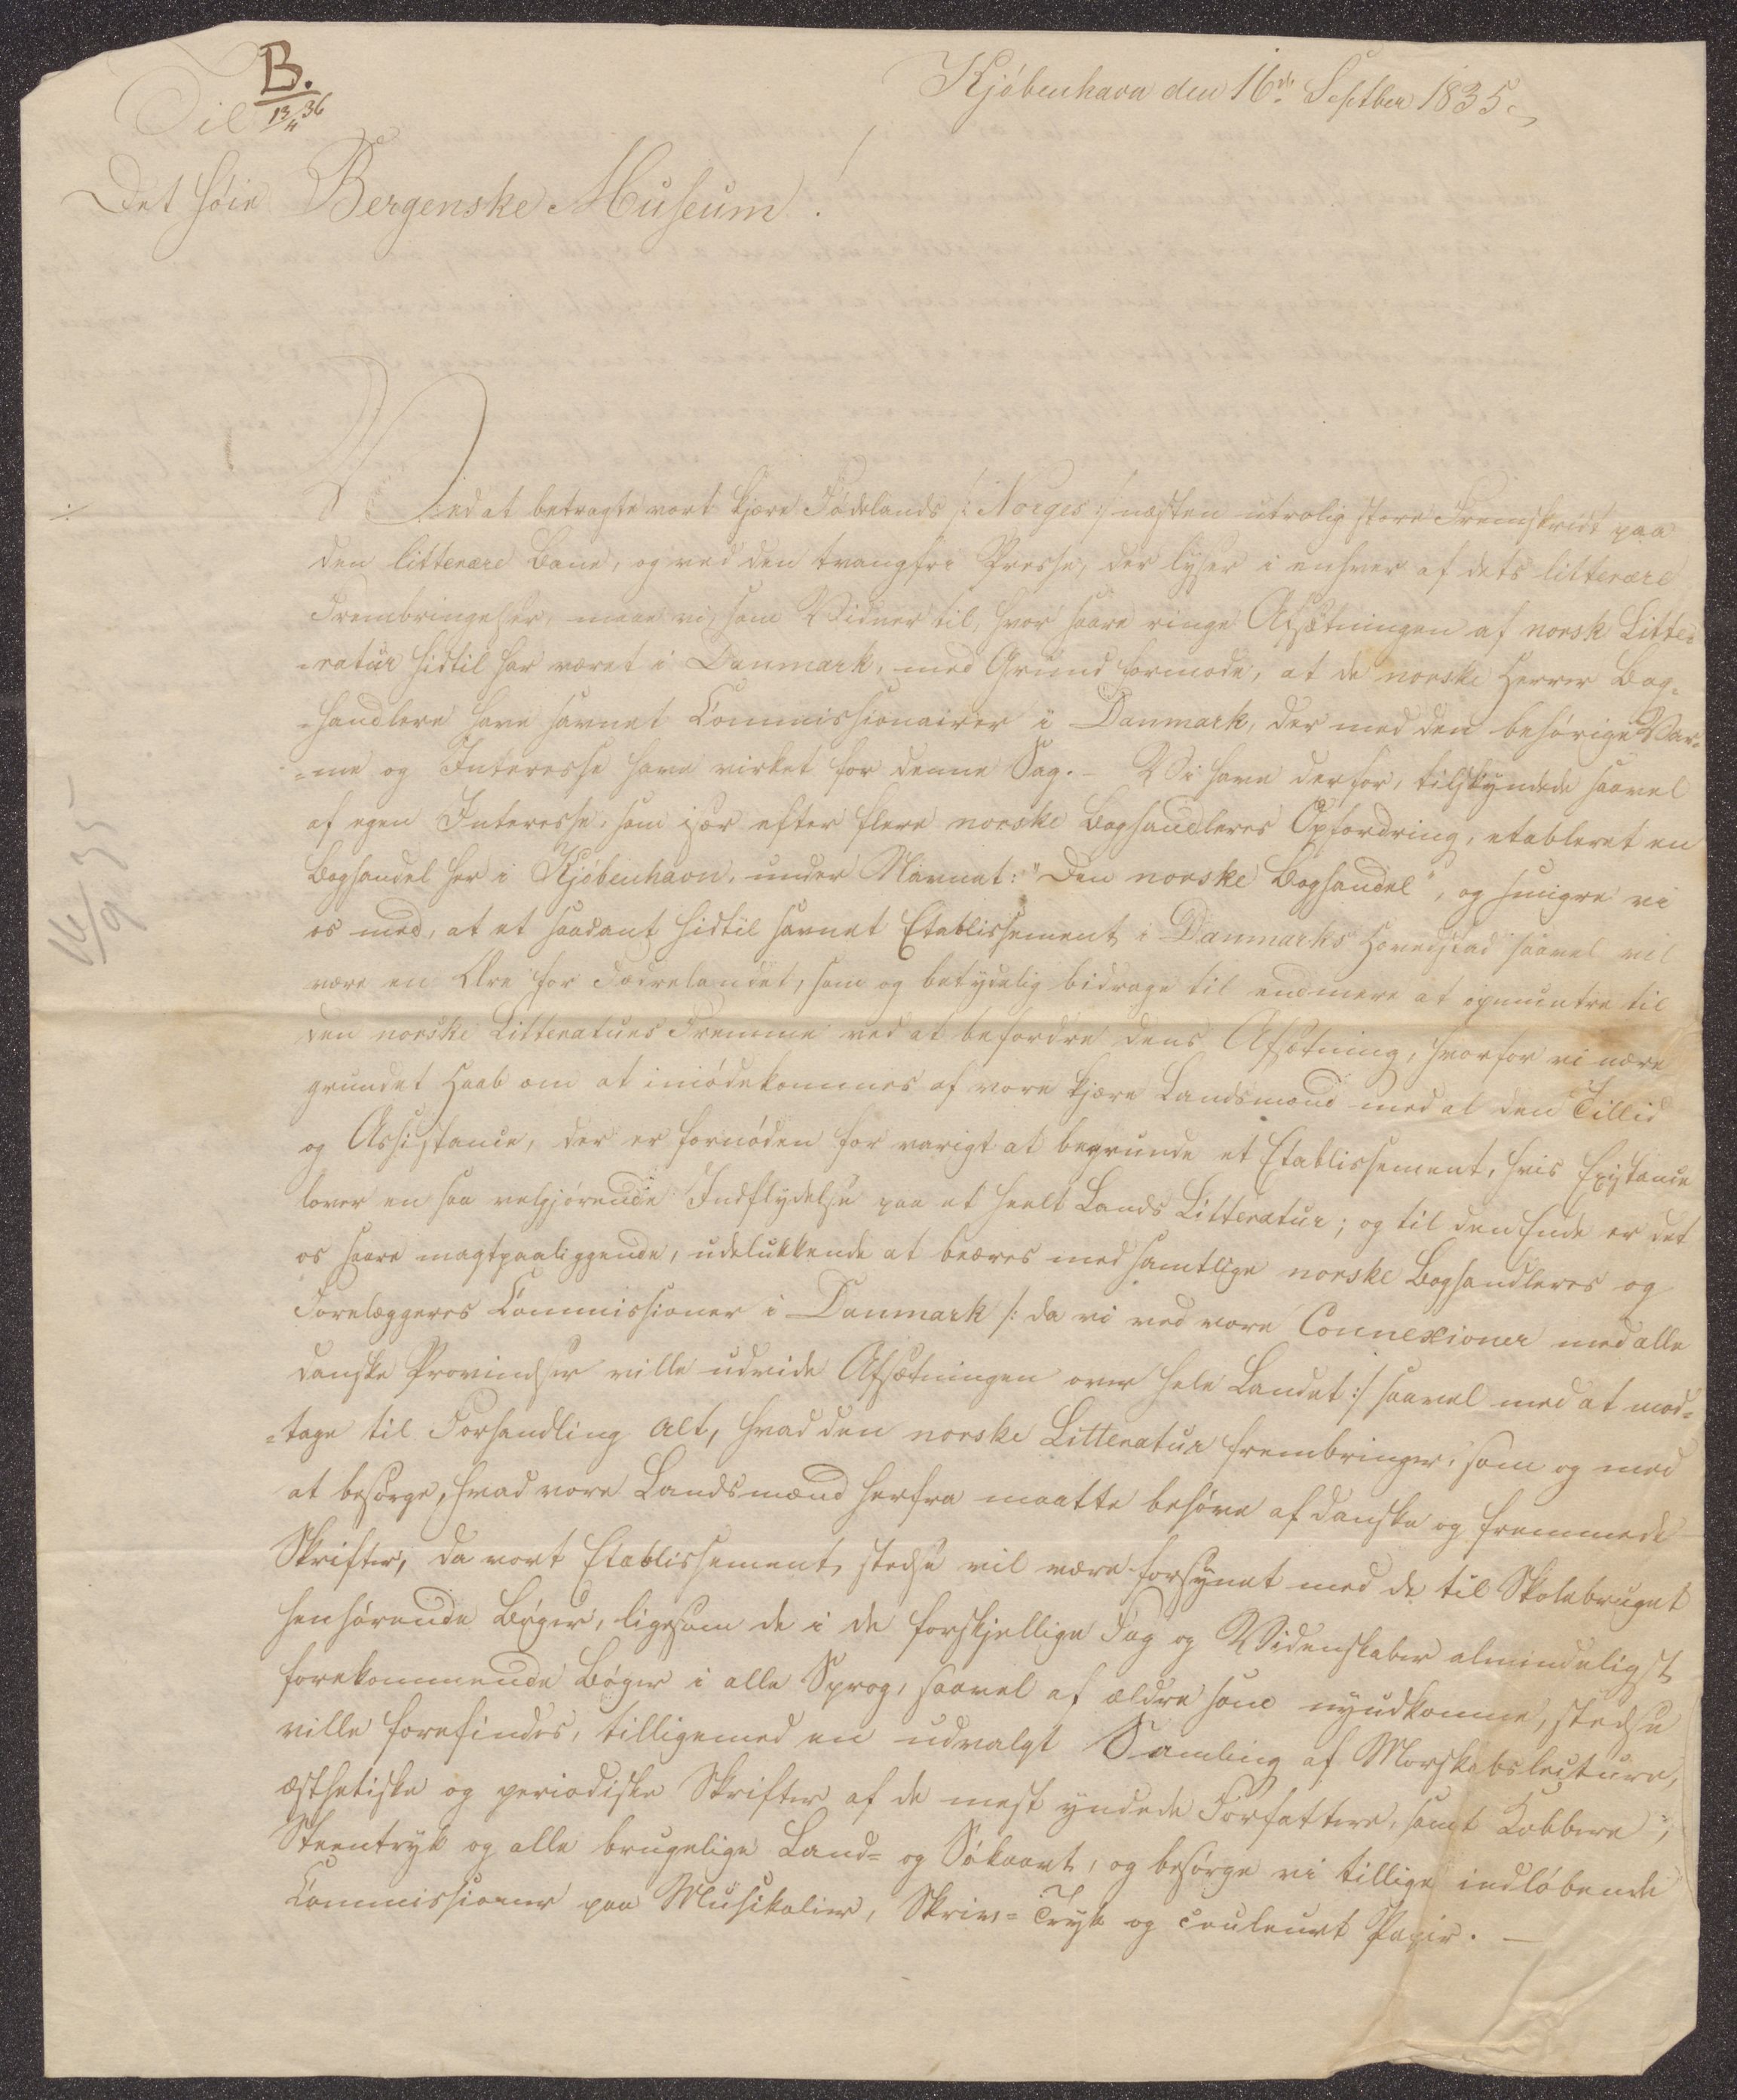 B.
13/4 36
Kjöbenhavn den 16de Septber 1835.
Til
Det höie Bergenske Museum!
Ved at betragte vort kjære Födelands /: Norges :/ næsten utrolig store Fremskridt paa
den litterære Bane, og ved den tvangfri Presse, der lyser i enhver af dets litterære
Frembringelser, maae vi, som Vidner til, hvor saare ringe Afsætningen af norsk Litte=
=ratur hidtil har været i Danmark, med Grund formode, at de norske Herrer Bog=
=handlere have savnet Commissionairer i Danmark, der med den behörige Var=
=me og Interesse have virket for denne Sag. – Vi have derfor, tilskyndede saavel
af egen Interesse, som især efter flere norske Boghandleres Opfordring, etableret en
Boghandel her i Kjöbenhavn, under Navnet: "Den norske Boghandel", og smigre vi
os med, at et saadant hidtil savnet Etablissement i Danmarks Hovedstad saavel vil
være en Ære for Fædrelandet, som og betydelig bidrage til endmere at opmuntre til
den norske Litteraturs Fremme ved at befordre dens Afsætning, hvorfor vi nære
grundet Haab om at imödekommes af vore kjære Landsmænd med al den Tillid
og Assistance, der er fornöden for varigt at begrunde et Etablissement, hvis Existance
lover en saa velgjörende Indflydelse paa et heelt Lands Litteratur; og til den Ende er det
os saare magtpaaliggende, udelukkende at beæres med samtlige norske Boghandleres og
Forlæggeres Commissioner i Danmark /: da vi ved vore Connexioner med alle
danske Provindser ville udvide Afsætningen over hele Landet :/ saavel med at mod=
=tage til Forhandling alt, hvad den norske Litteratur frembringer, som og med
at besörge, hvad vore Landsmænd herfra maatte behöve af danske og fremmede
Skrifter, da vort Etablissement stedse vil være forsynet med de til Skolebruget
henhörende Böger, ligesom de i de forskjellige Fag og Videnskaber almindeligst
forekommende Böger i alle Sprog, saavel af ældre som nyudkomne, stedse
ville forefindes, tilligemed en udvalgt Samling af Morskabslecture,
æsthetiske og periodiske Skrifter af de mest yndede Forfattere, samt Kobbere,
Steentryk og alle brugelige Land= og Sökaart, og besörge vi tillige indlöbende
Commissioner paa Musikalier, Skriv= Tryk og couleurt Papir. –
16/9 35